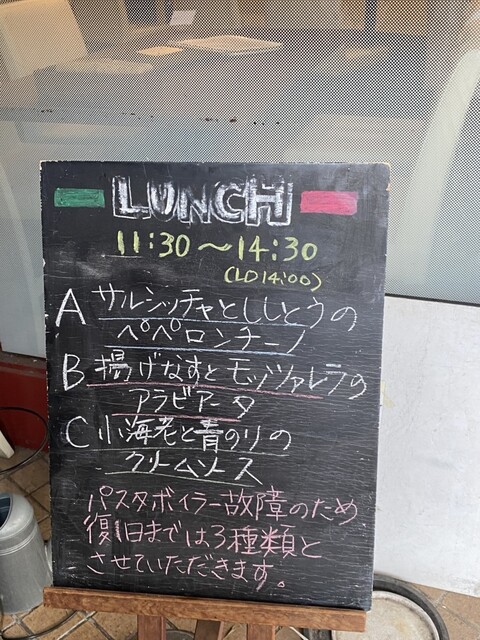 LUNCH
11:30〜14:30
(LO14:00)
A サルシッチャとししとうの
ペペロンチーノ
B 揚げなすとモッツァレラの
アラビアータ
C 小海老と青のりの
クリームソース
パスタボイラー故障のため
復旧までは3種類と
させていただきます。